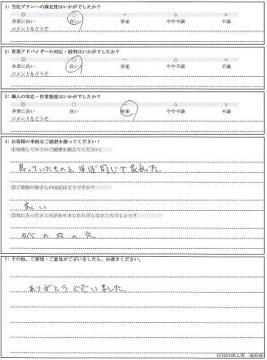 1) 当社プランへの満足度はいかがでしたか？
◎ ○ － △ ×
非常に良い 良い 普通 やや不満 不満
コメントをどうぞ
2) 営業アドバイザーの対応・説明はいかがでしたか？
◎ ○ － △ ×
非常に良い 良い 普通 やや不満 不満
コメントをどうぞ
3) 職人の対応・作業態度はいかがでしたか？
◎ ○ － △ ×
非常に良い 良い 普通 やや不満 不満
コメントをどうぞ
4) お客様の率直なご感想を教えてください！
①完成してみてのご感想を教えてください。
思っていたものとほぼ同じで良かった。
②ご家族の皆さんの反応はどうですか？
良い
③気に入ったところがありましたらどんなところでしょう？
かべの
5) その他、ご感想・ご意見がございましたら、お書きください。
ありがとうございました。